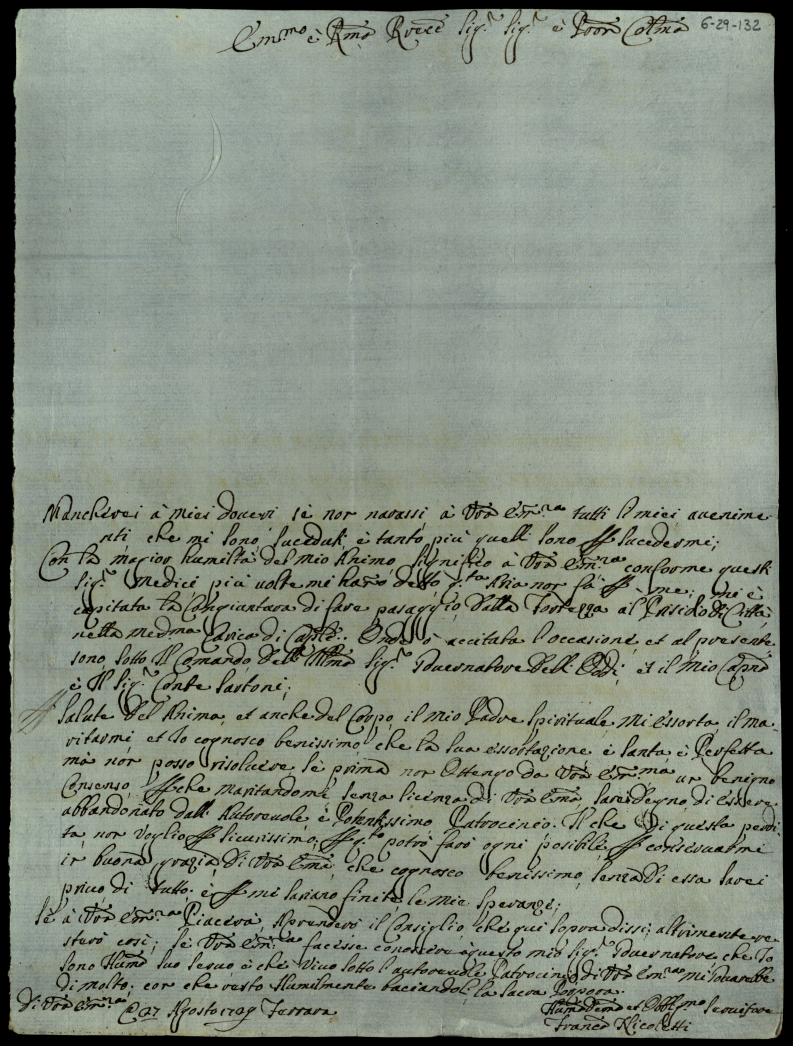 Em.mo è Rmo 6-29-132
Sig.r Sig.r è Pron Colmo
Mancherei à miei doveri se non narassi à Vra Em.za tutti l miei avenime
nti che mi sono suceduti è tanto più quelli sono p sucedermi;
Con la magior humiltà del mio Animo significo à Vra Em.za conforme questi
Sig.ri Medici più volte mi hano detto q.ta Aria non fà p me; qui è
capitata la Congiuntura di fare pasaggio dalla Fortezza al Presidio di Città
nella medma Carica di Onde ò accitata l'occasione, et al presente
sono sotto Il Comando dell' Illmo Sig.r Guvernatore Dell Oddi, et il mio Capno
è Il Sig.r Conte Sartoni;
p Salute del Anima, et anche del Corpo, il mio Padre Spirituale mi essorta, il ma
ritarmi et Io cognosco benissimo che la sua essortazione è santa, è Perfetta
mà non posso risolvere se prima non Ottengo da Vra Em.za un benigno
Consenso p che maritandomi senza licenza di Vra Ema sarei degno di essere
abbandonato dall Autorevole è Potentissimo Patrocinio. Il che di questa perdi
ta non voglio p sicurissimo, p q.to potrò farò ogni posibile p conservarmi
in buona grazia di Vra Ema, che cognosco benissimo, senza di essa sarei
privo di tutto è p mi sariano finite le mie speranze;
Se à Vra Em.za Piacerà Aprenderò il Consiglio che qui sopra dissi, altrimente re
sterò così; se Vra Em.za facesse conoscere à questo mio Sig.r Guvernatore che Io
sono Humo suo servo è che vivo sotto l'autorevole Patrocinio di Vra Em.za mi Giovarebbe
di molto: con che resto Humilmente baciandoli la Sacra Porpora.
Di Vra Em.za 27 Agosto 1729 Ferrara Humo Devmo et Obblig.mo Servitore
Franco Nicoletti